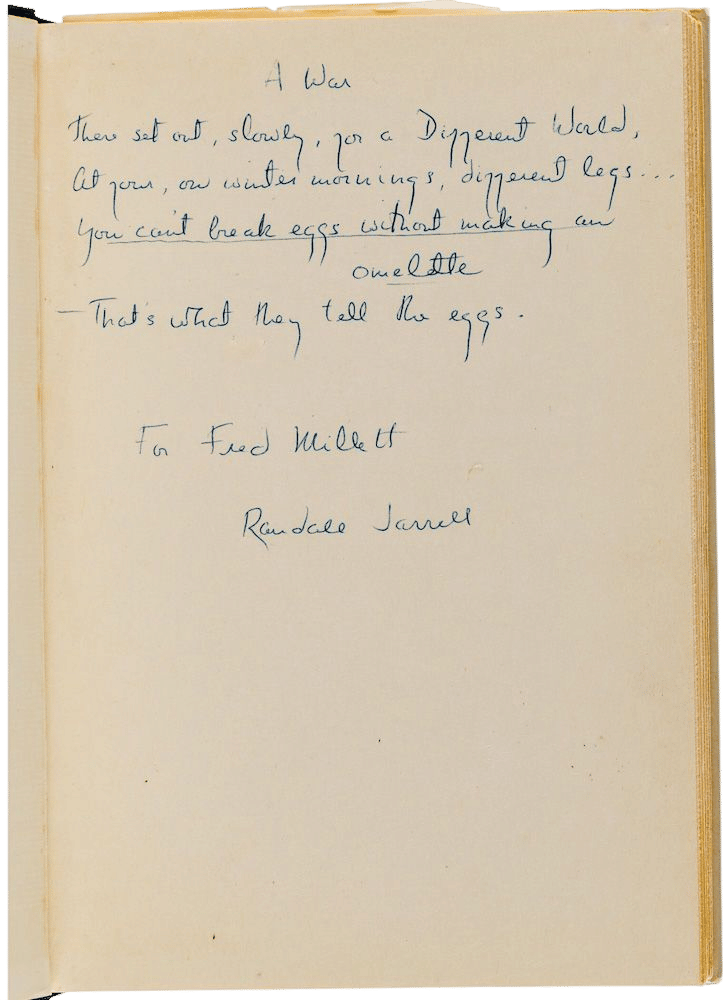 A War
There set out, slowly, for a Different World,
At four, on winter mornings, different legs...
You can't break eggs without making an
omelette
—That's what they tell the eggs.
For Fred Millett
Randall Jarrell